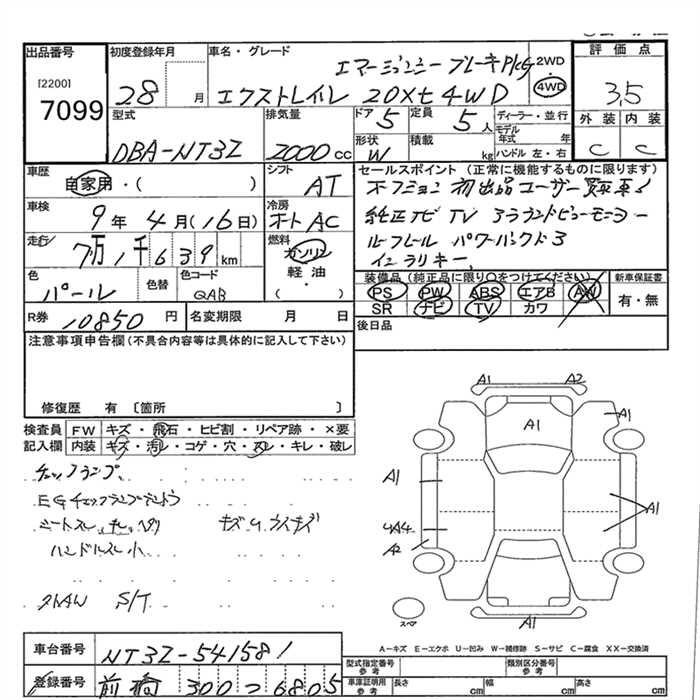 出品番号
[2200]
7099
初度登録年月
28 月
車名・グレード
エマージェンシーブレーキPkG
エクストレイル 20Xt 4WD
2WD
・
4WD
評価点
3,5
外装 内装
C C
型式
DBA-NT32
排気量
2000 cc
ドア 5
定員 5 人
形状 W
積載 kg
ディーラー・並行
モデル年式 年
ハンドル 左・右
車歴
自家用・( )
シフト
AT
車検
9年 4月(16日)
冷房
オート AC
走行
7万1千639km
燃料
ガソリン
軽油
( )
色
パール
色替
色コード
QAB
R券 10850 円
名変期限 月 日
セールスポイント (正常に機能するものに限ります)
初出品 ユーザー買取車!
純正ナビ TV アラウンドビューモニター
ルーフレール パワーバックドア
インテリキー、
装備品(純正品に限り○をつけてください)
PS PW ABS エアB AW
SR ナビ TV カワ
新車保証書
有・無
後日品
注意事項申告欄(不具合内容等は具体的に記入して下さい)
修復歴 有 〔箇所 〕
検査員記入欄
FW キズ・飛石・ヒビ割・リペア跡・×要
内装 キズ・汚レ・コゲ・穴・スレ・キレ・破レ
チェックランプ
EGチェックランプ
シートスレ
ハンドルスレ小
S/T
A1 A2
A1
A1
A1
A1
A2
A1
スペア
A-キズ E-エクボ U-凹み W-補修跡 S-サビ C-腐食 XX-交換済
車台番号 NT32-541581
登録番号 前橋 300 つ 6805
型式指定番号 参考
類別区分番号 参考
車庫証明用 参考
長さ cm
幅 cm
高さ cm